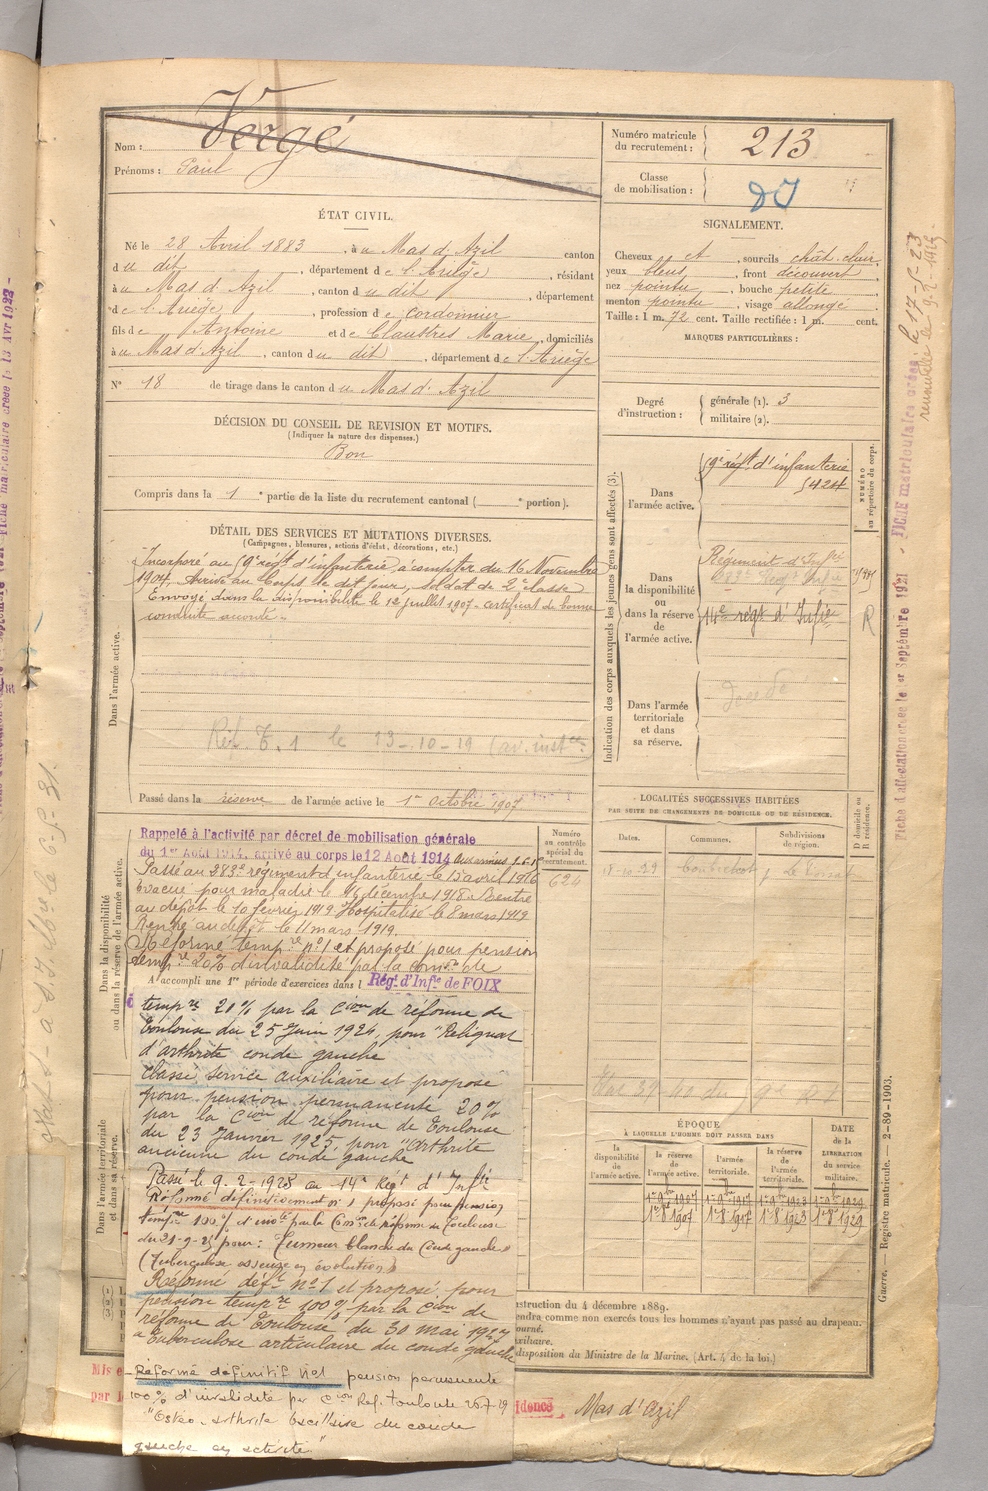 Nom : Vergé
Prénoms : Paul
Numéro matricule du recrutement : 213
Classe de mobilisation :
ÉTAT CIVIL.
Né le 28 Avril 1883, à u Mas d'Azil canton
d u dit, département d e l'Ariège, résidant
à u Mas d'Azil, canton d u dit, département
d e l'Ariège, profession d e cordonnier
fils d e Antoine et d e Claustres Marie, domiciliés
à u Mas d'Azil, canton d u dit, département d e l'Ariège
N° 18 de tirage dans le canton d u Mas d'Azil
SIGNALEMENT.
Cheveux et, sourcils chât. clair,
yeux bleus, front découvert
nez pointu, bouche petite,
menton pointu, visage allongé
Taille : 1 m. 72 cent. Taille rectifiée : 1 m. cent.
MARQUES PARTICULIÈRES :
Degré d'instruction : générale (1). 3
militaire (2).
DÉCISION DU CONSEIL DE REVISION ET MOTIFS.
(Indiquer la nature des dispenses.)
Bon
Compris dans la 1e partie de la liste du recrutement cantonal ( e portion).
DÉTAIL DES SERVICES ET MUTATIONS DIVERSES.
(Campagnes, blessures, actions d'éclat, décorations, etc.)
Dans l'armée active.
Incorporé au 59e régt d'infanterie à compter du 16 Novembre
1904. Arrivé au Corps le dit jour, soldat de 2e classe
Envoyé dans la disponibilité le 12 Juillet 1907 - certificat de bonne
conduite accordé.
Réf. T. 1 le 13-10-19 (av. instce)
Passé dans la réserve de l'armée active le 1er Octobre 1907
Indication des corps auxquels les jeunes gens sont affectés (3).
NUMÉRO au répertoire du corps.
Dans l'armée active.
59e régt d'infanterie
5424
Dans la disponibilité ou dans la réserve de l'armée active.
Régiment d'Infie
283e Régt Infie
14e régt d'Infie
R
Dans l'armée territoriale et dans sa réserve.
LOCALITÉS SUCCESSIVES HABITÉES
PAR SUITE DE CHANGEMENTS DE DOMICILE OU DE RÉSIDENCE.
Dates.
Communes.
Subdivisions de région.
D domicile ou R résidence.
Dans la disponibilité ou dans la réserve de l'armée active.
Numéro au contrôle spécial du recrutement.
624
Rappelé à l'activité par décret de mobilisation générale
du 1er Août 1914, arrivé au corps le 12 Août 1914
Passé au 283e régiment d'infanterie le 15 avril 1916
Évacué pour maladie le 16 décembre 1918. Rentré
au dépôt le 10 février 1919 Hospitalisé le 8 mars 1919
Rentré au dépôt le 11 mars 1919.
Réformé tempre n°1 et proposé pour pension
tempre 20% d'invalidité par la comon de
A accompli une 1re période d'exercices dans l
Régt d'Infie de FOIX
tempre 20% par la Cion de réforme de
Toulouse du 25 Juin 1924 pour "Reliquat
d'arthrite coude gauche
Classé service auxiliaire et proposé
pour pension permanente 20%
par la Cion de réforme de Toulouse
du 23 Janvier 1925 pour "Arthrite
ancienne du coude gauche
Passé le 9-2-1928 au 14e Régt d'Infie
Réformé définitivement n°1 proposé pour pension
tempre 100% d'invté par la Comon de réforme de Toulouse
du 21-9-25 pour : Tumeur blanche du Coude gauche"
(Tuberculose osseuse en évolution)
Réformé déft n°1 et proposé pour
pension tempre 100% par la Cion de
réforme de Toulouse du 30 mai 1927
Tuberculose articulaire du coude gauche
Réformé définitif n°1 pension permanente
100% d'invalidité par Cion Réf. Toulouse 26.7.29
"Ostéo-arthrite bacillaire du coude
gauche en activité"
Dans l'armée territoriale et dans sa réserve.
ÉPOQUE
À LAQUELLE L'HOMME DOIT PASSER DANS
la disponibilité de l'armée active.
la réserve de l'armée active.
l'armée territoriale.
la réserve de l'armée territoriale.
DATE de la LIBÉRATION du service militaire.
1er 9bre 1907 1er 9bre 1917 1er 9bre 1923 1er 9bre 1929
1er 8bre 1907 1er 8bre 1917 1er 8bre 1923 1er 8bre 1929
struction du 4 décembre 1889.
endra comme non exercés tous les hommes n'ayant pas passé au drapeau.
ourné.
xiliaire.
disposition du Ministre de la Marine. (Art. 4 de la loi.)
Mis e
par l
idence Mas d'Azil
Guerre. Registre matricule. — 2-89-1903.
Fiche d'affectation créée le 1er Septembre 1921 - FICHE matriculaire créée le 17-5-23
renouvelée le 9-2-